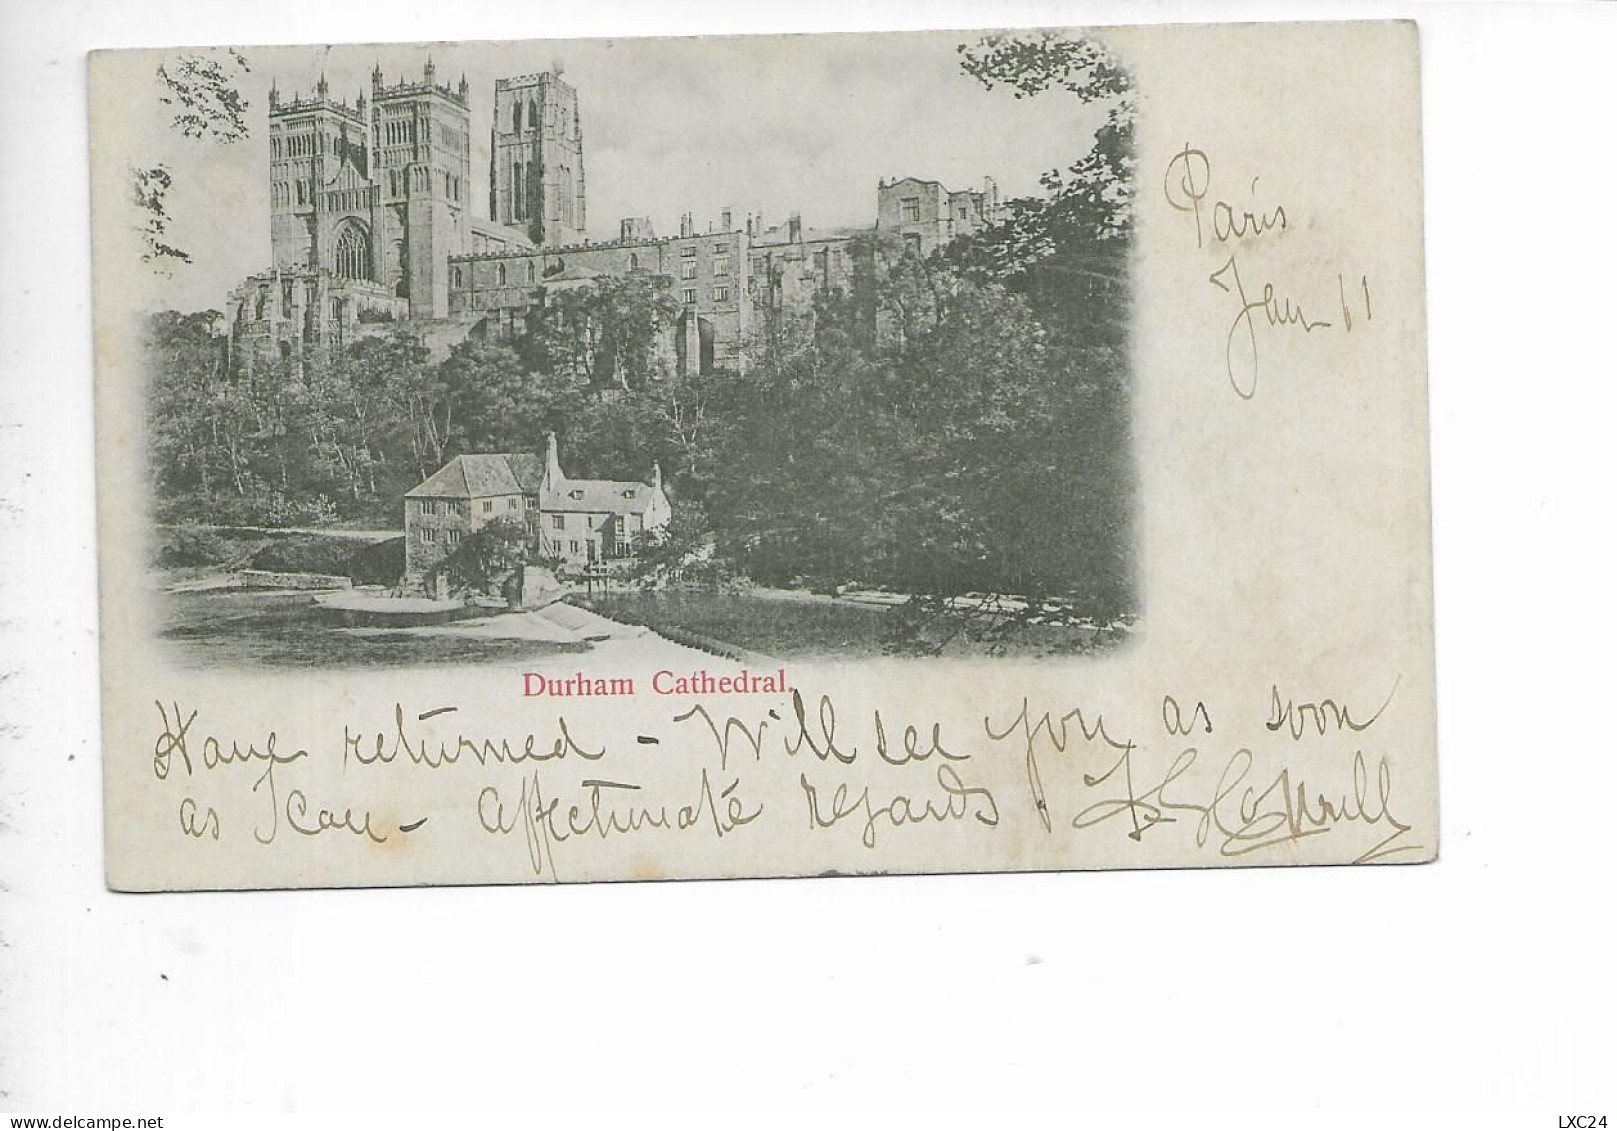 Paris
Jan 11
Durham Cathedral.
Have returned - Will see you as soon
as I can - Affectionate regards.
www.delcampe.net
LXC24